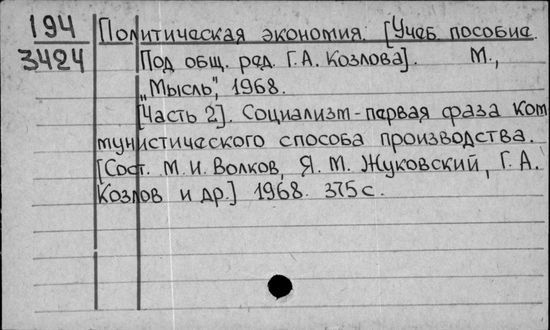 194
3424
Политическая экономия. [Учеб. пособие.
Под общ. ред. Г. А. Козлова]. М.,
„Мысль", 1968.
[Часть 2]. Социализм - первая фаза ком
мунистического способа производства.
[Сост. М. И. Волков, Я. М. Жуковский, Г. А.
Козлов и др.] 1968. 375 с.